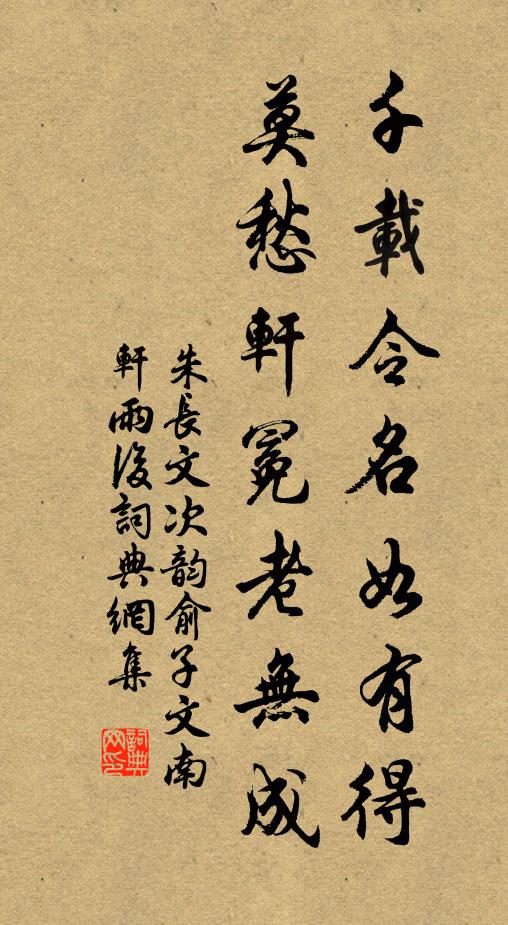 千載令名如有得
莫愁軒冕老無成
朱長文次韵俞子文南
軒雨後詞典網集
詞典网印